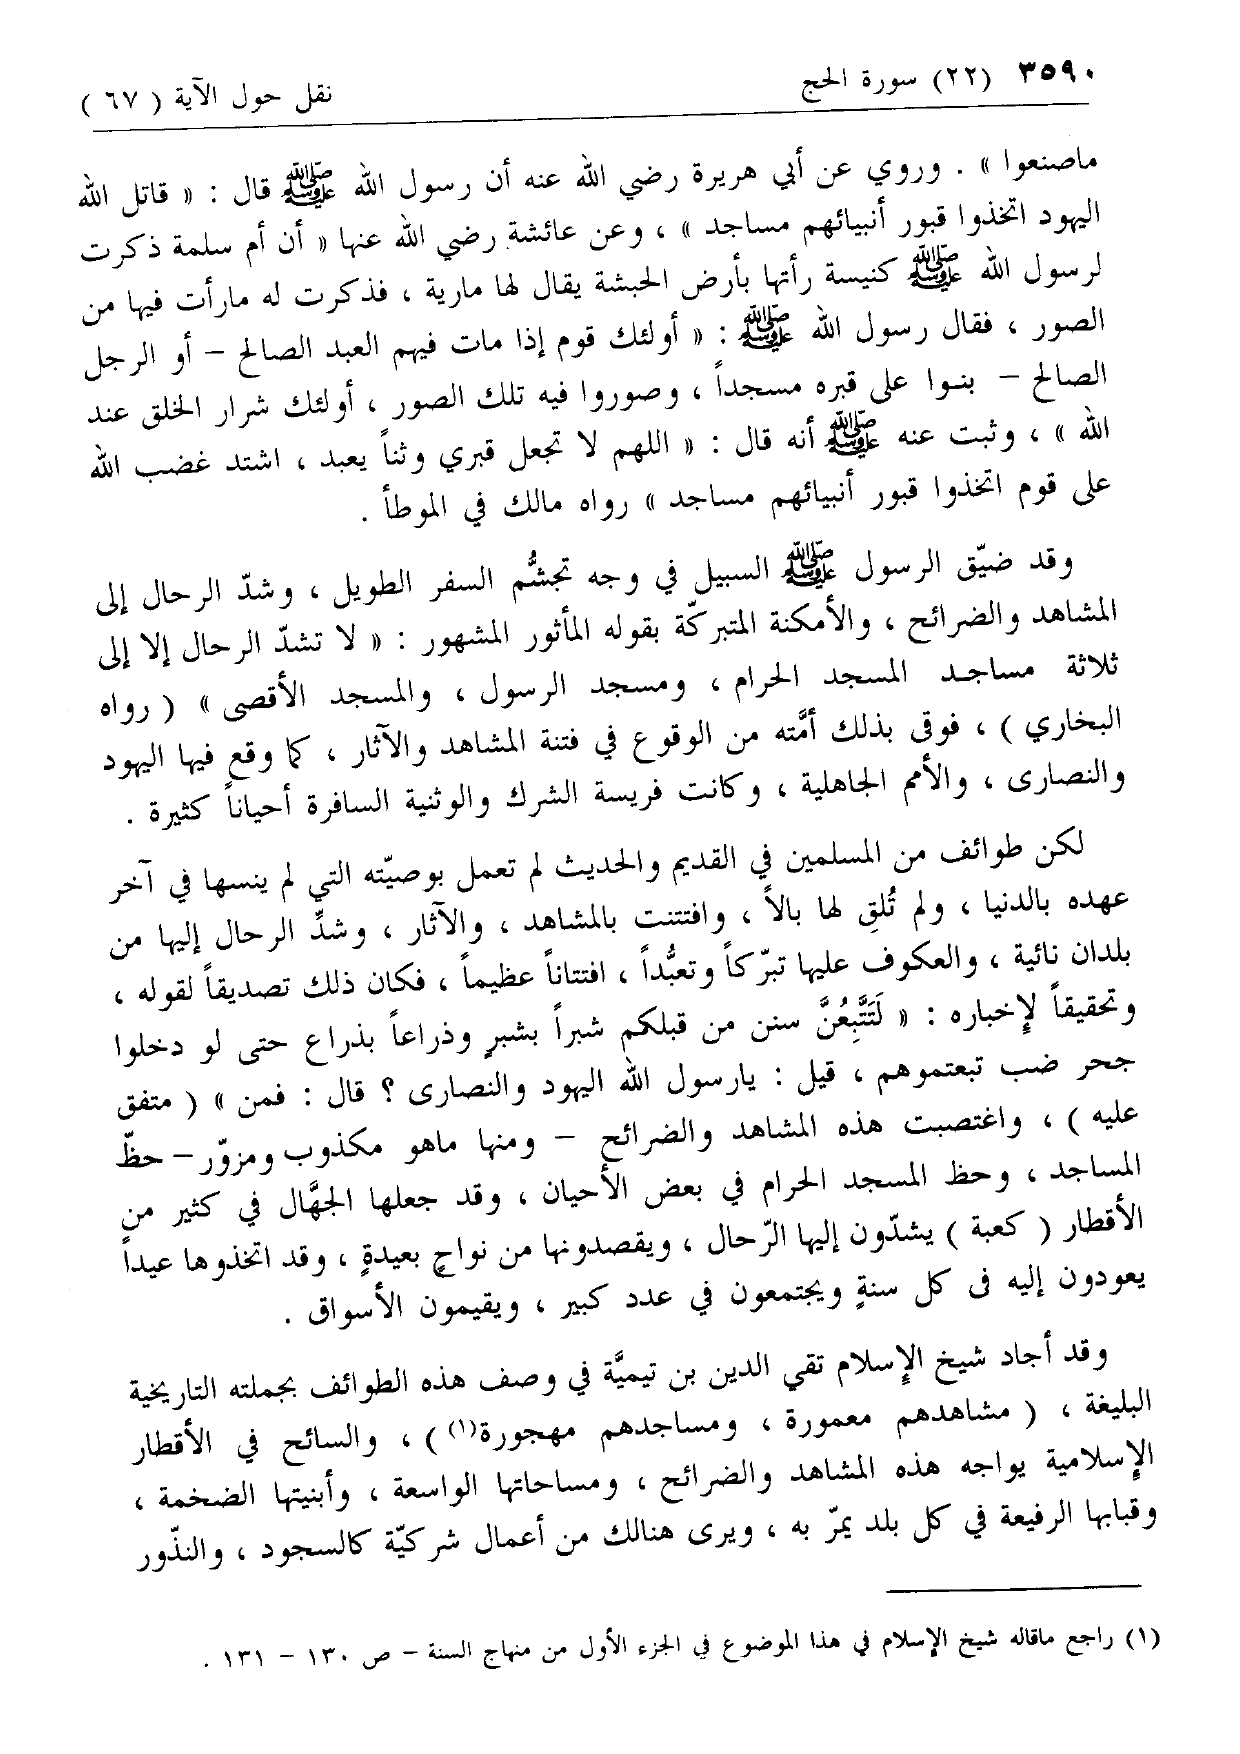 ٣٥٩٠ (٢٢) سورة الحج نقل حول الآية ( ٦٧ )
ماصنعوا » . وروي عن أبي هريرة رضي الله عنه أن رسول الله ﷺ قال : « قاتل الله
اليهود اتخذوا قبور أنبيائهم مساجد » ، وعن عائشة رضي الله عنها « أن أم سلمة ذكرت
لرسول الله ﷺ كنيسة رأتها بأرض الحبشة يقال لها مارية ، فذكرت له مارأت فيها من
الصور ، فقال رسول الله ﷺ : « أولئك قوم إذا مات فيهم العبد الصالح – أو الرجل
الصالح – بنوا على قبره مسجداً ، وصوروا فيه تلك الصور ، أولئك شرار الخلق عند
الله » ، وثبت عنه ﷺ أنه قال : « اللهم لا تجعل قبري وثناً يعبد ، اشتد غضب الله
على قوم اتخذوا قبور أنبيائهم مساجد » رواه مالك في الموطأ .
وقد ضيّق الرسول ﷺ السبيل في وجه تجشُّم السفر الطويل ، وشدّ الرحال إلى
المشاهد والضرائح ، والأمكنة المتبركّة بقوله المأثور المشهور : « لا تشدّ الرحال إلا إلى
ثلاثة مساجد المسجد الحرام ، ومسجد الرسول ، والمسجد الأقصى » ( رواه
البخاري ) ، فوقى بذلك أمَّته من الوقوع في فتنة المشاهد والآثار ، كما وقع فيها اليهود
والنصارى ، والأمم الجاهلية ، وكانت فريسة الشرك والوثنية السافرة أحياناً كثيرة .
لكن طوائف من المسلمين في القديم والحديث لم تعمل بوصيّته التي لم ينسها في آخر
عهده بالدنيا ، ولم تُلقِ لها بالاً ، وافتتنت بالمشاهد ، والآثار ، وشدِّ الرحال إليها من
بلدان نائية ، والعكوف عليها تبرّكاً وتعبُّداً ، افتتاناً عظيماً ، فكان ذلك تصديقاً لقوله ،
وتحقيقاً لإخباره : « لَتَتَّبِعُنَّ سنن من قبلكم شبراً بشبرٍ وذراعاً بذراع حتى لو دخلوا
جحر ضب تبعتموهم ، قيل : يارسول الله اليهود والنصارى ؟ قال : فمن » ( متفق
عليه ) ، واغتصبت هذه المشاهد والضرائح – ومنها ماهو مكذوب ومزوّر – حظّ
المساجد ، وحظ المسجد الحرام في بعض الأحيان ، وقد جعلها الجهَّال في كثير من
الأقطار ( كعبة ) يشدّون إليها الرّحال ، ويقصدونها من نواحٍ بعيدةٍ ، وقد اتخذوها عيداً
يعودون إليه فى كل سنةٍ ويجتمعون في عدد كبير ، ويقيمون الأسواق .
وقد أجاد شيخ الإسلام تقي الدين بن تيميَّة في وصف هذه الطوائف بجملته التاريخية
البليغة ، ( مشاهدهم معمورة ، ومساجدهم مهجورة(١) ) ، والسائح في الأقطار
الإسلامية يواجه هذه المشاهد والضرائح ، ومساحاتها الواسعة ، وأبنيتها الضخمة ،
وقبابها الرفيعة في كل بلد يمرّ به ، ويرى هنالك من أعمال شركيّة كالسجود ، والنذّور
(١) راجع ماقاله شيخ الإسلام في هذا الموضوع في الجزء الأول من منهاج السنة – ص ١٣٠ – ١٣١ .